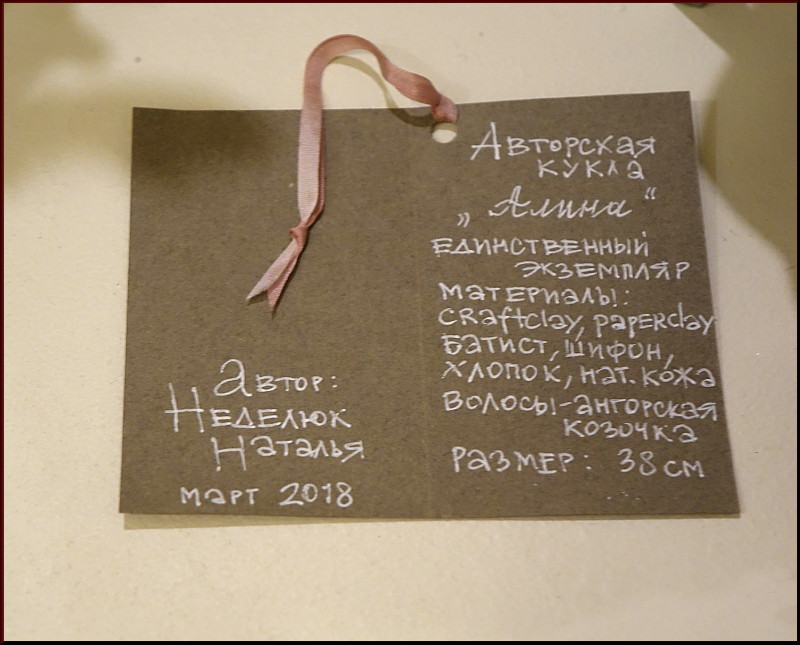 Автор:
Неделюк
Наталья
март 2018
Авторская
кукла
„Алина“
единственный
экземпляр
материалы:
craftclay, paperclay
батист, шифон,
хлопок, нат. кожа
волосы-ангорская
козочка
размер: 38 см